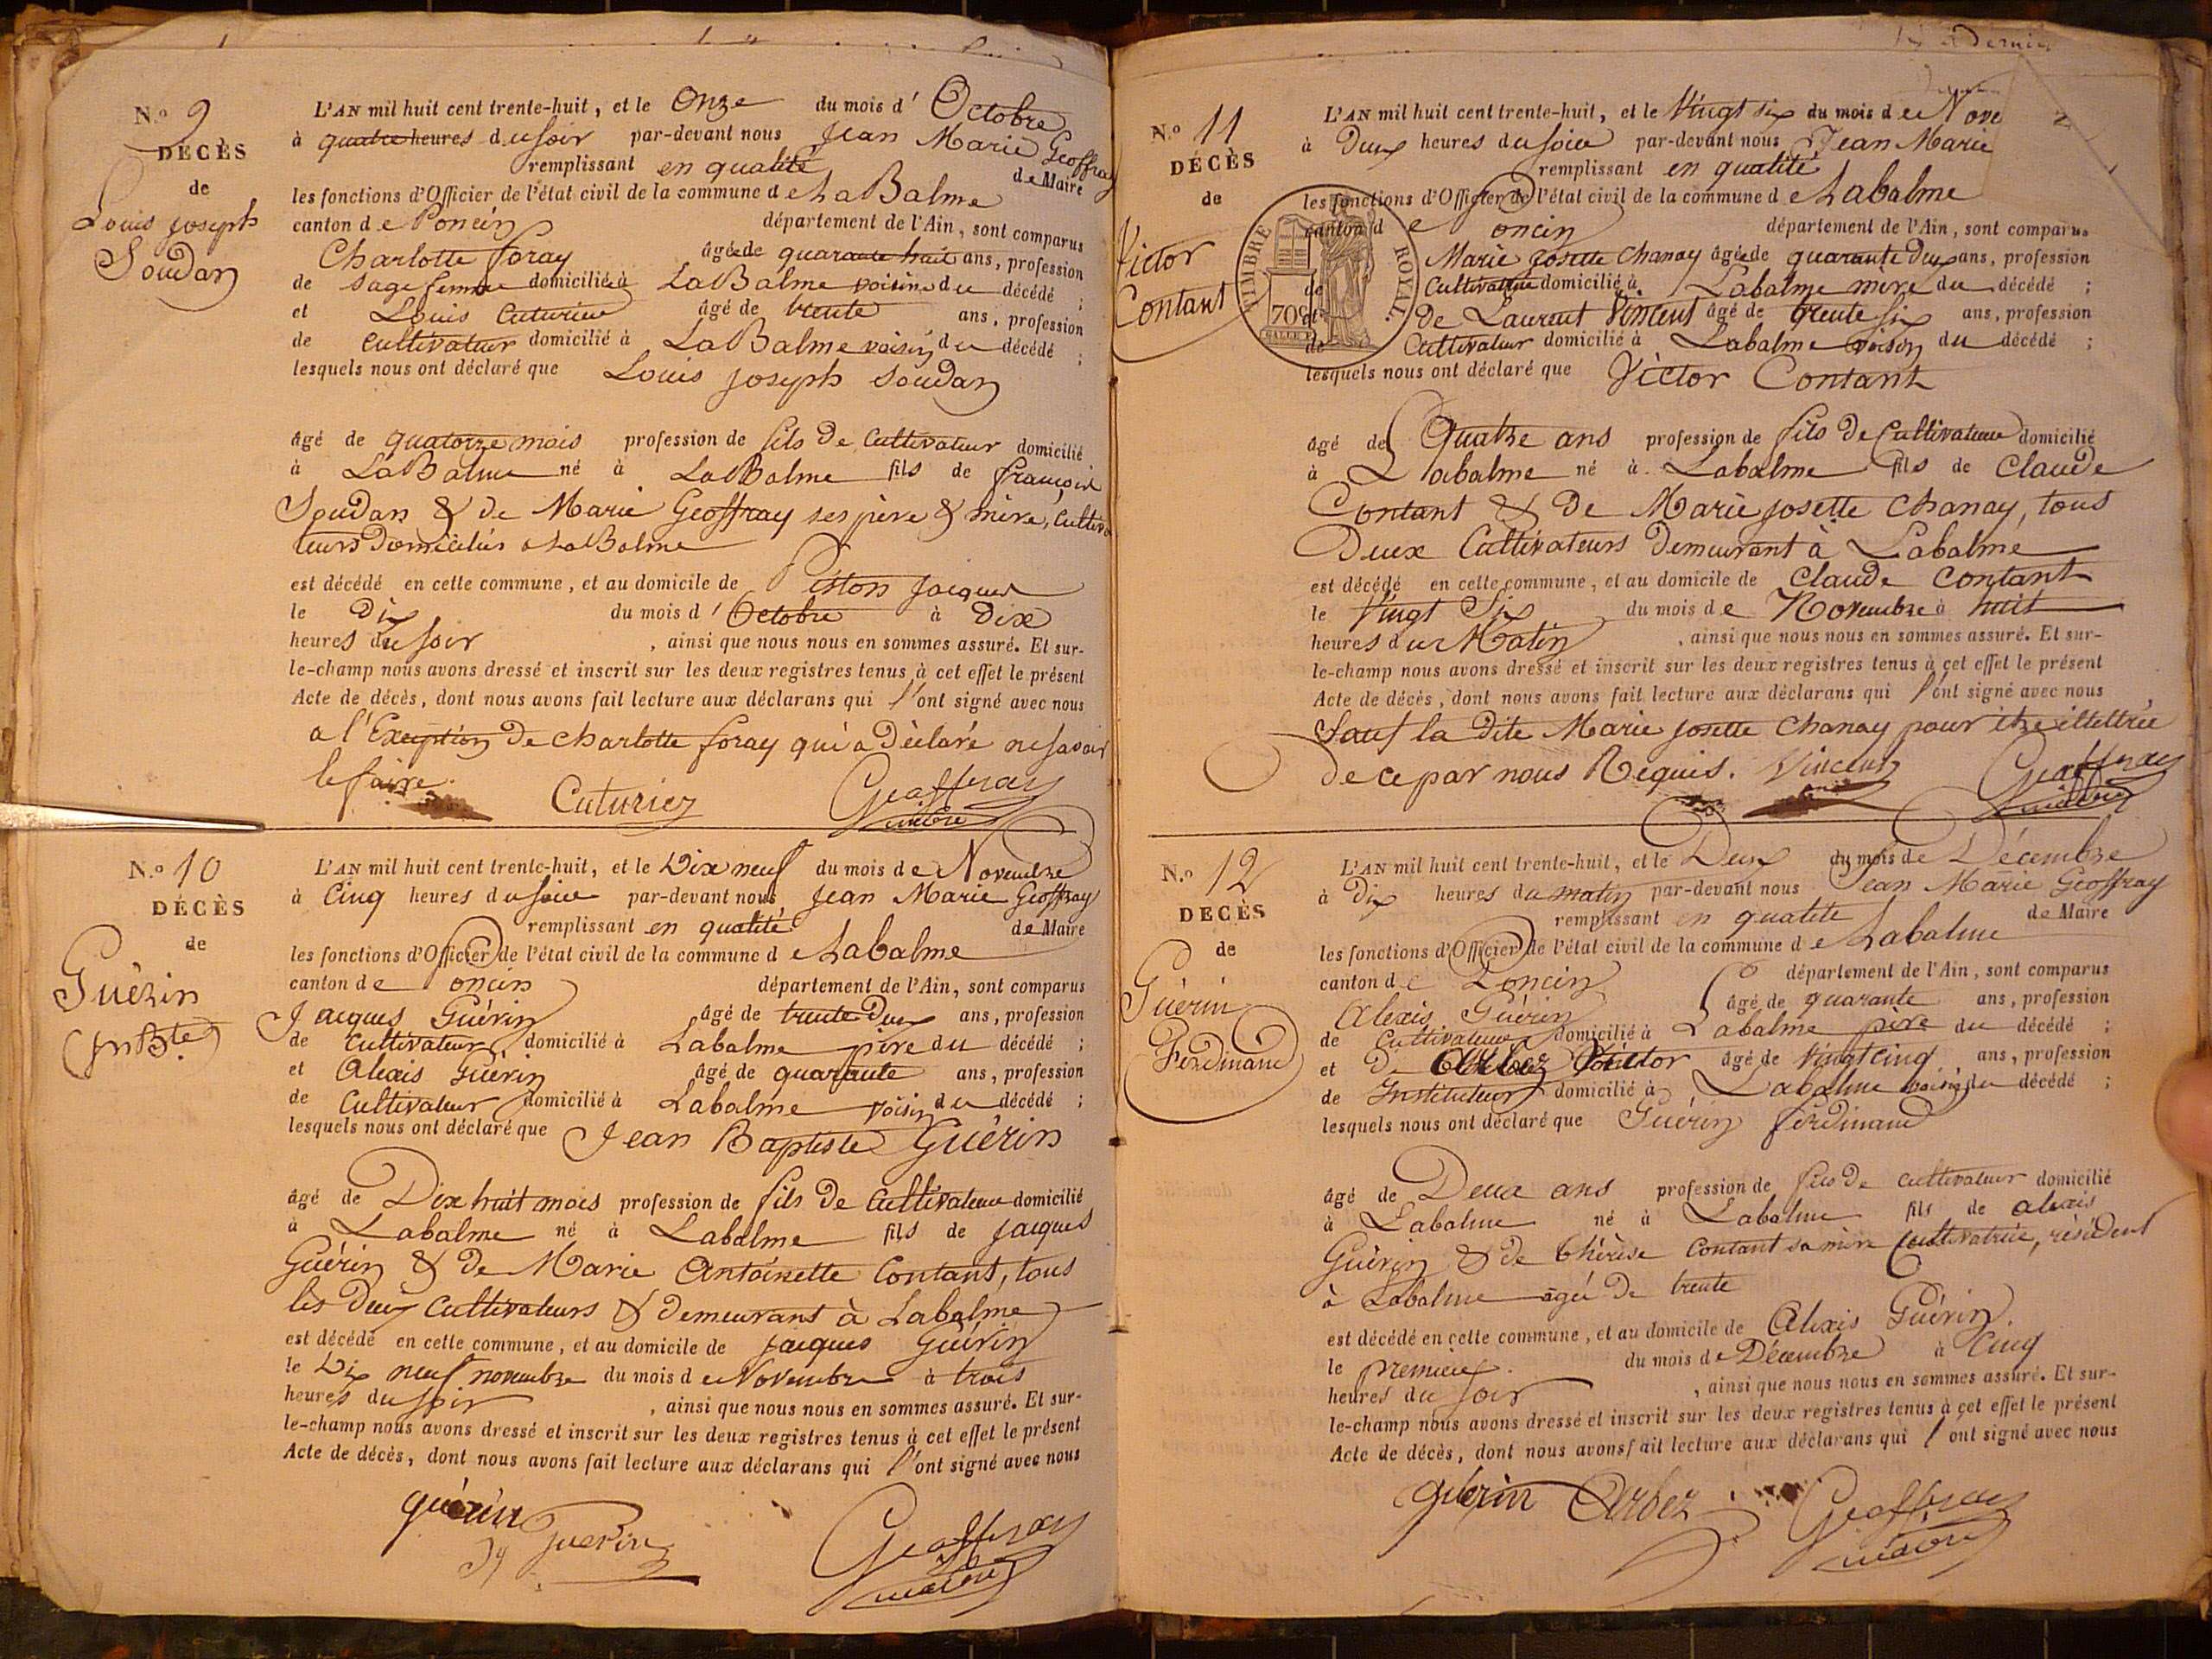 N.° 9
DÉCÈS
de
Louis joseph
Soudan
L'AN mil huit cent trente-huit, et le Onze du mois d' Octobre
à quatre heures du soir par-devant nous Jean Marie Geoffray
remplissant en qualité de Maire
les fonctions d'Officier de l'état civil de la commune de La Balme
canton de Poncin département de l'Ain, sont comparus
Charlotte foray âgée de quarante huit ans, profession
de sage femme domiciliée à La Balme voisine du décédé ;
et Louis Cuturier âgé de trente ans, profession
de Cultivateur domicilié à La Balme voisin du décédé ;
lesquels nous ont déclaré que Louis joseph Soudan
âgé de quatorze mois profession de fils de Cultivateur domicilié
à La Balme né à La Balme fils de françois
Soudan & de Marie Geoffray ses père & mère, Cultiva
teurs domiciliés a La Balme
est décédé en cette commune, et au domicile de Piston Jacques
le Dix du mois d' Octobre à Dix
heures du soir , ainsi que nous nous en sommes assuré. Et sur-
le-champ nous avons dressé et inscrit sur les deux registres tenus à cet effet le présent
Acte de décès, dont nous avons fait lecture aux déclarans qui l'ont signé avec nous
a l'Exception de charlotte foray qui a déclaré ne savoir
le faire.
Cuturier Geoffray maire
N.° 10
DÉCÈS
de
Guérin
(Jn Bte)
L'AN mil huit cent trente-huit, et le Dix neuf du mois de Novembre
à Cinq heures du soir par-devant nous Jean Marie Geoffray
remplissant en qualité de Maire
les fonctions d'Officier de l'état civil de la commune de Labalme
canton de Poncin département de l'Ain, sont comparus
Jacques Guérin âgé de trente Deux ans, profession
de Cultivateur domicilié à Labalme père du décédé ;
et Alexis Guérin âgé de quarante ans, profession
de Cultivateur domicilié à Labalme voisin du décédé ;
lesquels nous ont déclaré que Jean Baptiste Guérin
âgé de Dix huit mois profession de fils De Cultivateur domicilié
à Labalme né à Labalme fils de Jacques
Guérin & de Marie Antoinette Contant, tous
les Deux Cultivateurs & demeurans à Labalme
est décédé en cette commune, et au domicile de Jacques Guérin
le Dix neuf novembre du mois de Novembre à trois
heures du soir , ainsi que nous nous en sommes assuré. Et sur-
le-champ nous avons dressé et inscrit sur les deux registres tenus à cet effet le présent
Acte de décès, dont nous avons fait lecture aux déclarans qui l'ont signé avec nous
guérin
Guerin Geoffray
maire
N.° 11
DÉCÈS
de
Victor
Contant
TIMBRE ROYAL.
70
L'AN mil huit cent trente-huit, et le Vingt six du mois de Nove
à Deux heures du soir par-devant nous Jean Marie
remplissant en qualité
les fonctions d'Officier de l'état civil de la commune de Labalme
canton de Poncin département de l'Ain, sont comparus
Marie Josette Chanay âgée de quarante Deux ans, profession
de Cultivatrice domicilié à Labalme mère du décédé ;
et de Laurent Vincent âgé de trente six ans, profession
de Cultivateur domicilié à Labalme voisin du décédé ;
lesquels nous ont déclaré que Victor Contant
âgé de Quatre ans profession de fils De Cultivateur domicilié
à Labalme né à Labalme fils de Claude
Contant & De Marie josette Chanay, tous
Deux Cultivateurs Demeurant à Labalme
est décédé en cette commune, et au domicile de Claude Contant
le Vingt Six du mois de Novembre à huit
heures du Matin , ainsi que nous nous en sommes assuré. Et sur-
le-champ nous avons dressé et inscrit sur les deux registres tenus à cet effet le présent
Acte de décès, dont nous avons fait lecture aux déclarans qui l'ont signé avec nous
Sauf la Dite Marie josette Chanay pour être illettrée
de ce par nous Requis. Vincent Geoffray
maire
N.° 12
DÉCÈS
de
Guérin
Ferdinand
L'AN mil huit cent trente-huit, et le Deux du mois de Décembre
à Dix heures du matin par-devant nous Jean Marie Geoffray
remplissant en qualité de Maire
les fonctions d'Officier de l'état civil de la commune de Labalme
canton de Poncin département de l'Ain, sont comparus
Alexis Guérin âgé de quarante ans, profession
de Cultivateur domicilié à Labalme père du décédé ;
et De Arbez Victor âgé de Vingt cinq ans, profession
de Instituteur domicilié à Labalme voisin du décédé ;
lesquels nous ont déclaré que Guérin ferdinand
âgé de Deux ans profession de fils De cultivateur domicilié
à Labalme né à Labalme fils de alexis
Guérin & de thérèse Contant sa mère Cultivatrice, résident
à Labalme agée De trente
est décédé en cette commune, et au domicile de Alexis Guérin.
le premier. du mois de Décembre à Cinq
heures du soir , ainsi que nous nous en sommes assuré. Et sur-
le-champ nous avons dressé et inscrit sur les deux registres tenus à cet effet le présent
Acte de décès, dont nous avons fait lecture aux déclarans qui l'ont signé avec nous
guérin Arbez Geoffray
maire